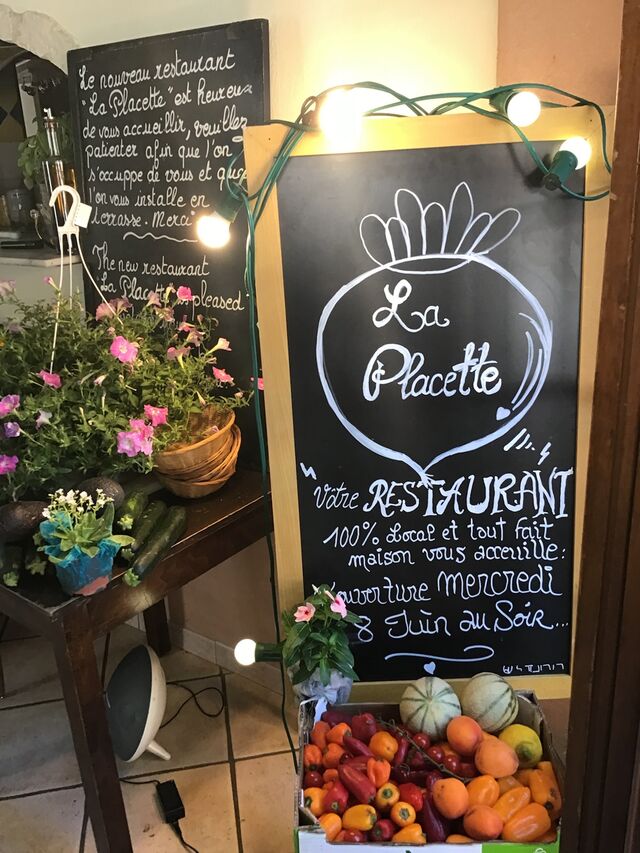 Le nouveau restaurant
"La Placette" est heureux
de vous accueillir, veuillez
patienter afin que l'on
s'occuppe de vous et que
l'on vous installe en
terrasse. Merci
The new restaurant
La Placette is pleased
La
Placette
Votre RESTAURANT
100% Local et tout fait
maison vous accueille :
L'ouverture mercredi
8 Juin au Soir...